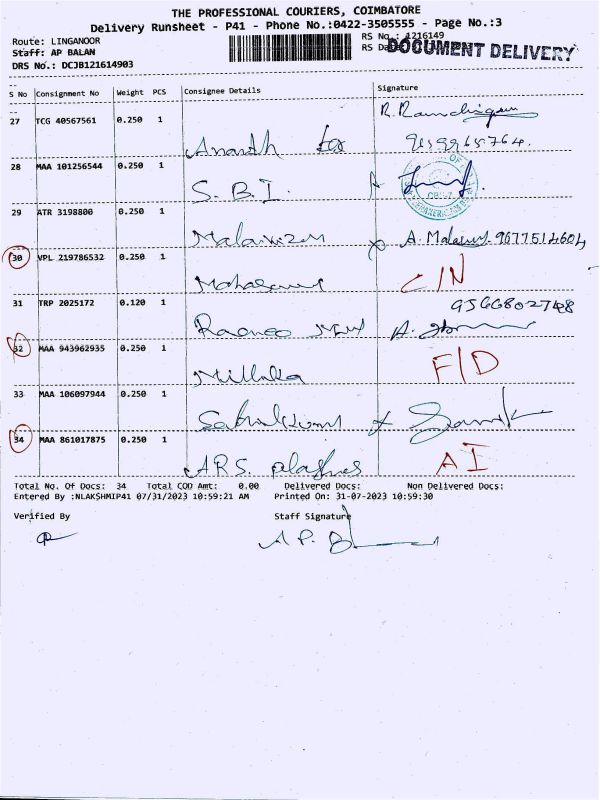 THE PROFESSIONAL COURIERS, COIMBATORE
Delivery Runsheet - P41 - Phone No.:0422-3505555 - Page No.:3
Route: LINGANOOR
RS No.: 1216149
Staff: AP BALAN
RS Da
DOCUMENT DELIVERY
DRS No.: DCJB121614903
S No Consignment No Weight PCS Consignee Details Signature
27 TCG 40567561 0.250 1
Ananth
28 MAA 101256544 0.250 1
S.B.I.
29 ATR 3198800 0.250 1
A. Malar 9677514604
30 VPL 219786532 0.250 1
C/N
31 TRP 2025172 0.120 1
9566802748
32 MAA 943962935 0.250 1
F/D
33 MAA 106097944 0.250 1
34 MAA 861017875 0.250 1
ARS. AI
Total No. Of Docs: 34 Total COD Amt: 0.00 Delivered Docs: Non Delivered Docs:
Entered By :NLAKSHMIP41 07/31/2023 10:59:21 AM Printed On: 31-07-2023 10:59:30
Verified By Staff Signature
A P. B